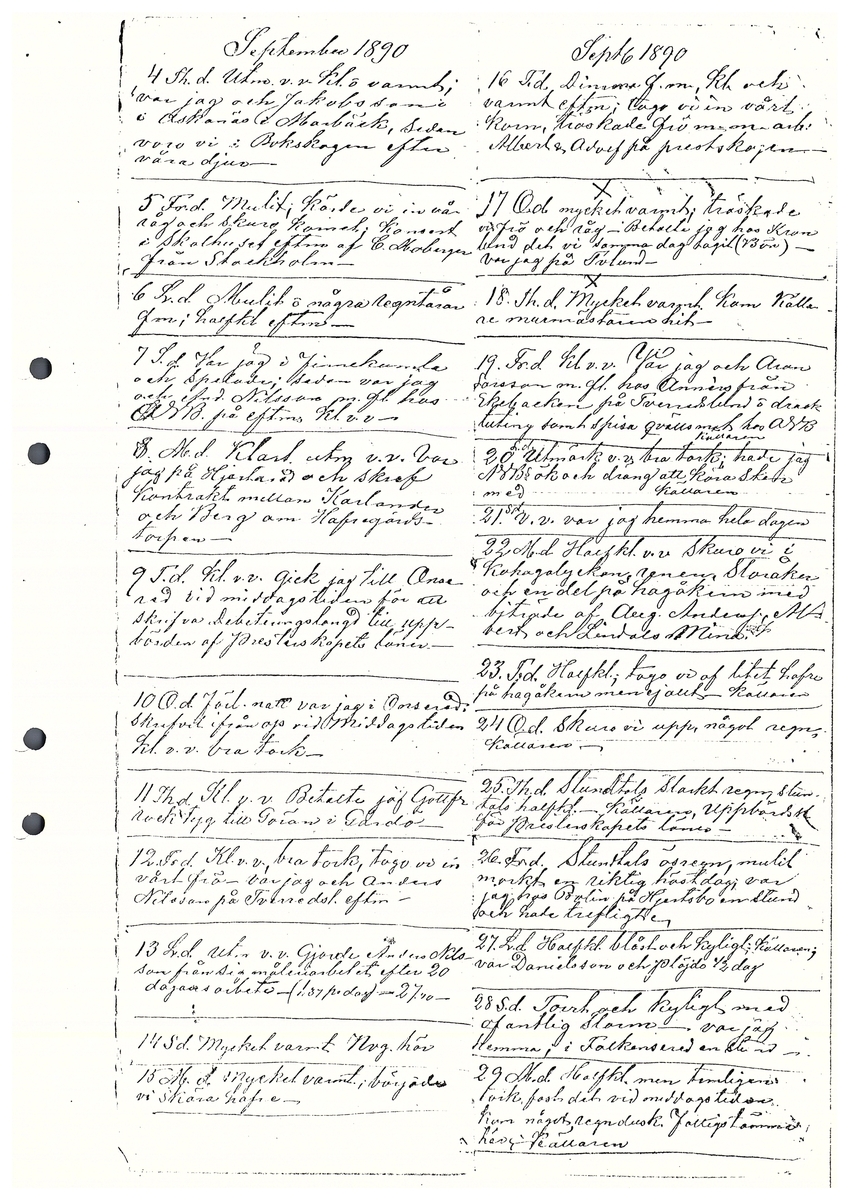 September 1890
4 Th.d. Utm. v.v. Kl. ö varmt;
var jag och Jakobsson i
i Askanäs i Marbäck, sedan
voro vi i Bokskogen efter
våra djur
5 Fr.d. Mulit; körde vi in vår
råg och skuro kornet; Konsert
i Skolhuset eftm af C. Moberger
från Stockholm
6 L.d. Mulit ö några regntårar
f.m; halfkl eftm
7 S.d. Var jag i Finnekumla
och spelade; sedan var jag
och Nilsson m.fl. hos
på eftm, Kl. v.v
8 M.d. Klart utm v.v. Var
jag på Hjertared och skref
Kontrakt mellan Karlander
och Berg om
torpen
9 T.d. Kl. v.v. Gick jag till Onse
red vid middagstiden för att
skrifva debeteringslängd till upp-
börden af Presterskapets löner
10 O.d. var jag i Onsered;
vid Middagstiden
Kl. v.v. bra tork
11 Th.d. Kl. v. v Betalte jag
tyg till Göran i Gärdö
12 Fr.d. Kl. v.v., bra tork, togo vi in
vårt frö var jag och Anders
Nilsson på Tvenedsl. eftm
13 L.d. Utm v.v. Gjorde Anders Nils-
son från sig måleriarbetet efter 20
dagars arbete (1.37 pr dag)
14 Sd. Mycket varmt Nvg. här
15 M.d. Mycket varmt; började
vi skära hafre
Sept 1890
16 T.d. Dimma f.m, kl. och
varmt eftm; togo vi in vårt
Korn, tröskade frö m.m arb.
Albert & Adolf på prestskogen
17 O.d mycket varmt; tröskade
vi frö och råg Betalte jag hos Kron
lund det vi samma dag tagit (73 öre)
var jag på Tvlund
18. Th.d. Mycket varmt. Kom Källa
re murmästaren hit
19. Fr.d Kl v.v. Var jag och Aron
Larsson m.fl. hos Anners från
Ekebacken på Tvenedslund ö drack
samt spisa qvällsmat hos
Källaren
20 Utmärk v.v, bra tork; hade jag
ök och dräng att köra sten
med Källaren
21. Sd V.v. var jag hemma hela dagen
22 M.d Halfkl. v.v Skuro vi i
Storåker
och en del på hagåkern med
biträde af Aug. Anders, Al-
bert och Lindals Mina
23. T.d. Halfkl; togo vi af litet hafre
på hagåkern men ej allt Källaren
24 O.d. Skuro vi upp, något regn,
Källaren
25. Th.d. Stundtals starkt regn, stun-
tals halfkl. Källaren, Uppbördsst
för Presterskapets löner
26. Fr.d. Stundtals ösregn, mulit
mörkt en riktig höstdag; var
jag hos Bolin på Hjertsbo en stund
och hade trefligt
27. L.d Halfkl. blåst och kyligt; Källaren;
var Danielsson och plöjde 1/2 dag
28 S.d. Torrt och kyligt med
storm var jag
hemma; i Falkensered en stund
29 M.d. Halfkl. men temligen
vid middagstiden
kom något regndusk.
Källaren